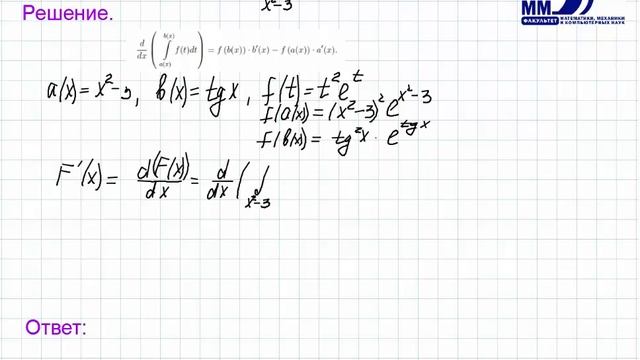 x²-3
Решение.
ММ
ФАКУЛЬТЕТ
МАТЕМАТИКИ, МЕХАНИКИ
И КОМПЬЮТЕРНЫХ НАУК
d/dx ( ∫_{a(x)}^{b(x)} f(t)dt ) = f(b(x)) · b'(x) − f(a(x)) · a'(x).
a(x) = x²-3, b(x) = tg x, f(t) = t² e^t
f(a(x)) = (x²-3)² e^{x²-3}
f(b(x)) = tg²x · e^{tg x}
F'(x) = d(F(x))/dx = d/dx ( ∫_{x²-3}
Ответ: